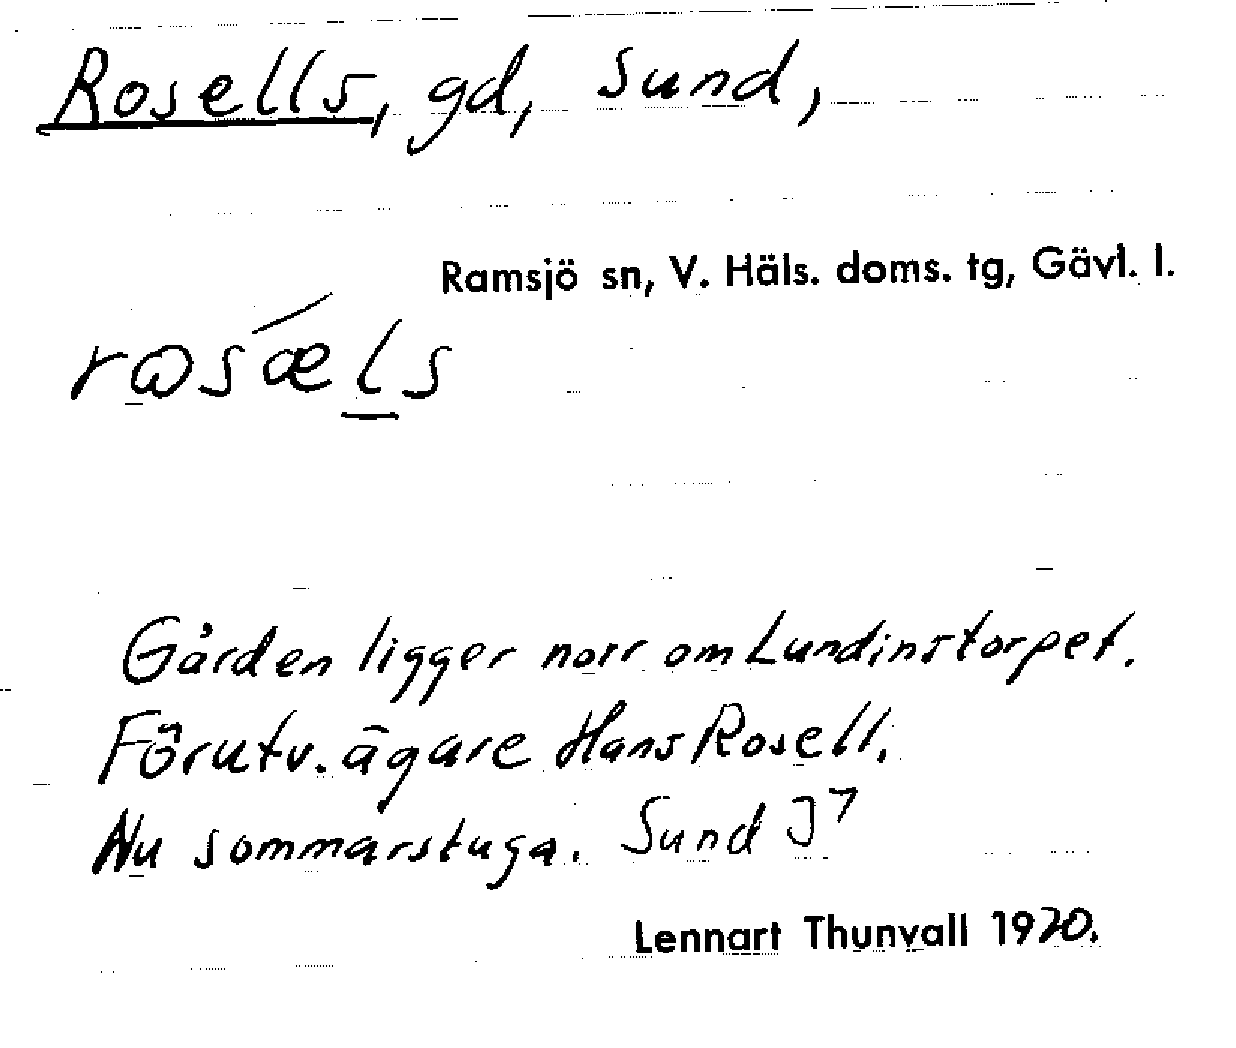 Rosells, gd, Sund,
Ramsjö sn, V. Häls. doms. tg, Gävl. l.
rɷsǽls
Gården ligger norr om Lundinstorpet.
Förutv. ägare Hans Rosell.
Nu sommarstuga. Sund 3⁷
Lennart Thunvall 1970.